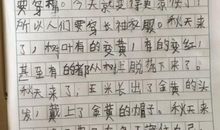 要穿棉。今天就变得黄凉快了
所以人们要穿长袖衣服。秋天来
了,树叶有的变黄,有的变红,
甚至有的都从树上脱落下来了。
秋天来了,玉米长出了金黄的头
发,戴上了金黄的帽子。秋天来